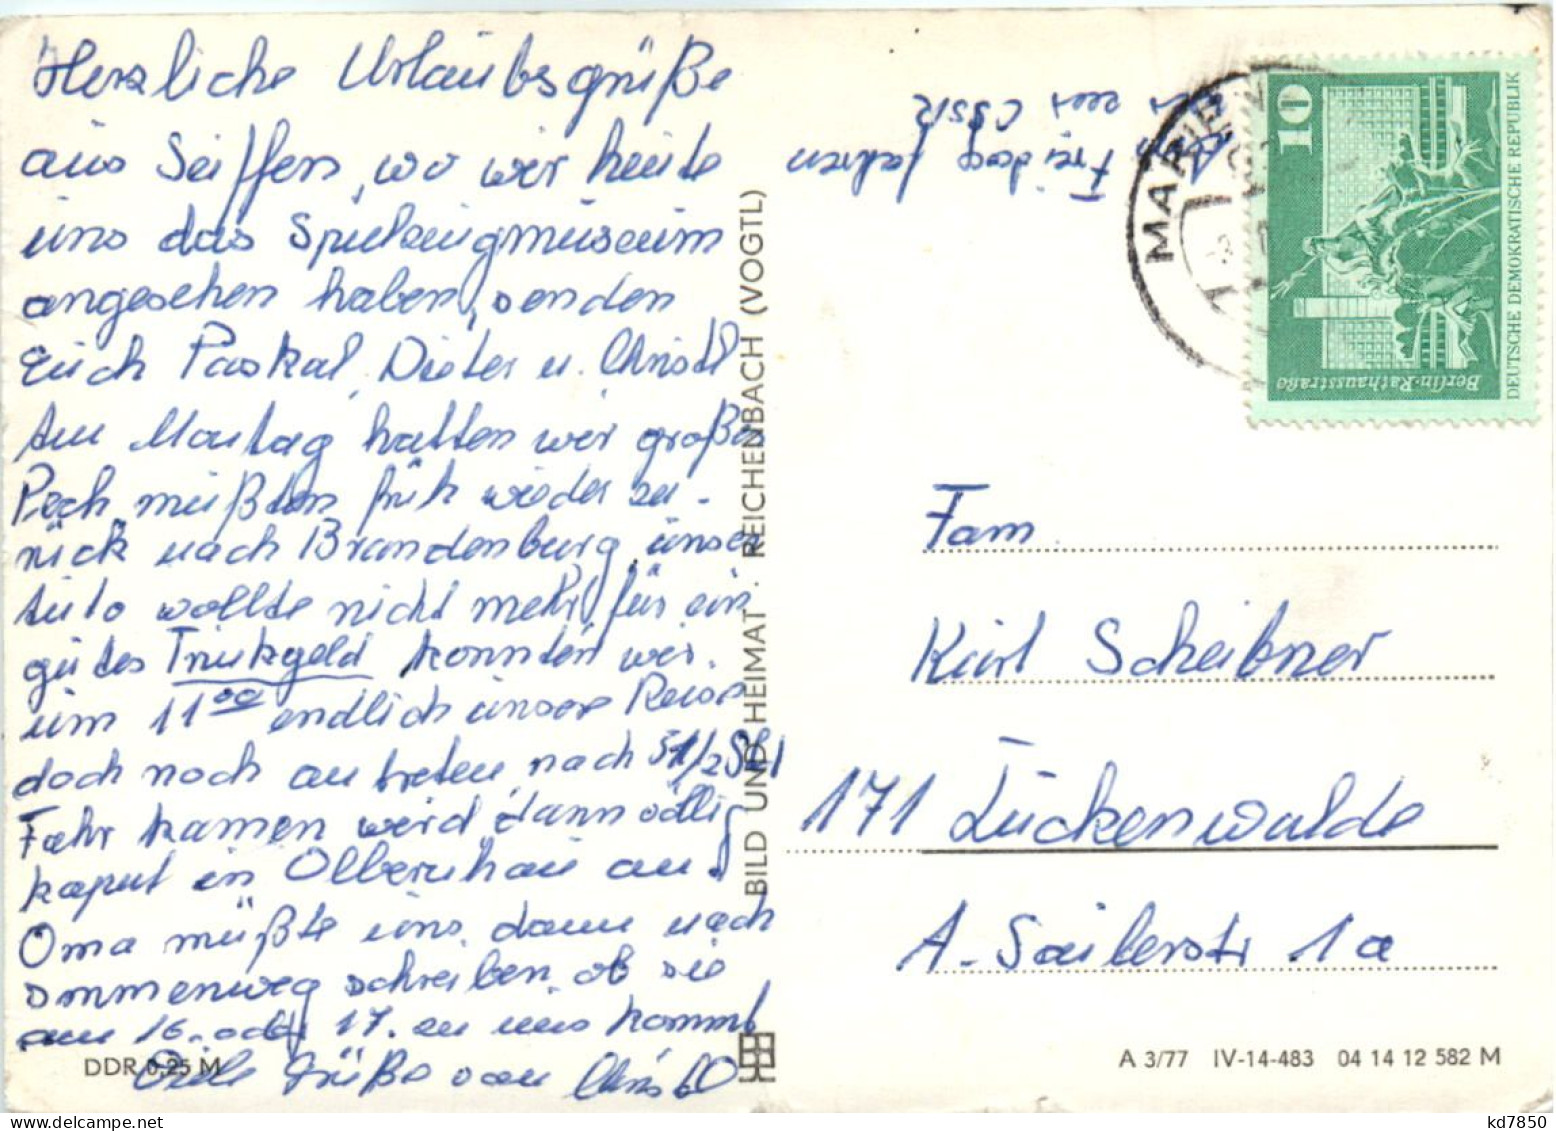 Herzliche Urlaubsgrüße
aus Seiffen, wo wir heute
uns das Spielzeugmuseum
angesehen haben, senden
Euch Paskal, Dieter u. Christl
Am Montag hatten wir große
Pech, mußten früh wieder zu-
rück nach Brandenburg, unser
Auto wollte nicht mehr, für ein
gutes Trinkgeld konnten wir.
um 11⁰⁰ endlich unsere Reise
doch noch antreten, nach 5 1/2 Std
Fahr kamen wir dann völlig
kaput in Olbernhau an.
Oma müßte uns dann nach
ommenweg schreiben, ob sie
am 16. oder 17. zu uns kommt
Viele Grüße von Christl
DDR 0,25 M
BILD UND HEIMAT · REICHENBACH (VOGTL)
Freitag fahren
CSSR
MARIEN
10
Berlin·Rathausstraße
DEUTSCHE DEMOKRATISCHE REPUBLIK
Fam.
Kurt Scheibner
171 Luckenwalde
A.-Sailerstr 1a
A 3/77 IV-14-483 04 14 12 582 M
kd7850